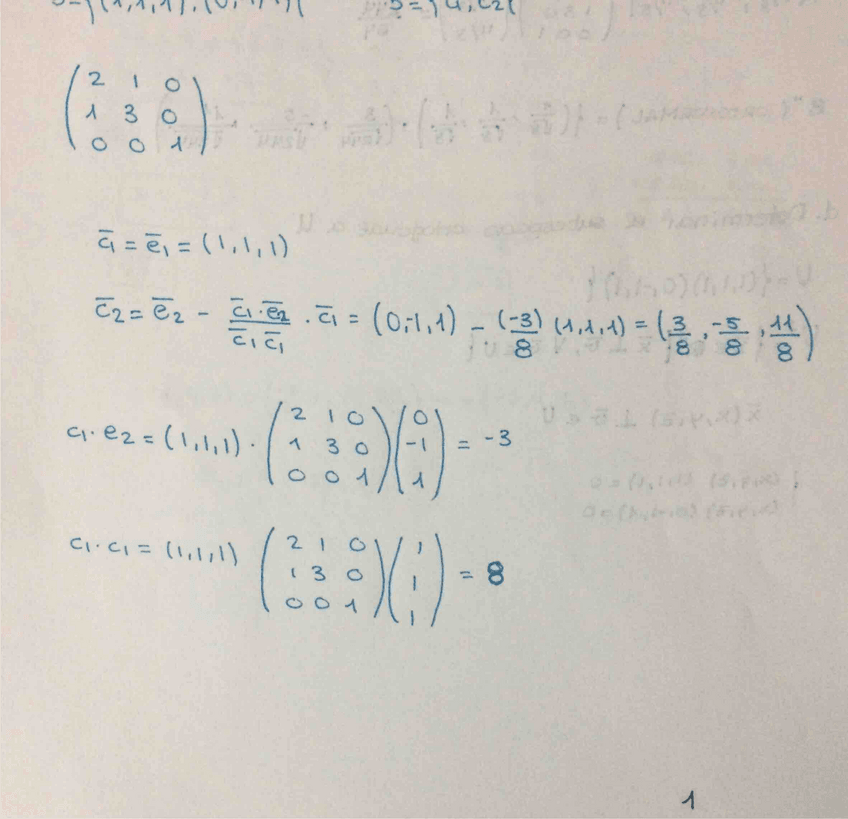 (1,1,1), (0,-1,1)
2 1 0
1 3 0
0 0 1
c̄₁ = ē₁ = (1,1,1)
c̄₂ = ē₂ - (c̄₁·ē₂)/(c̄₁ c̄₁) · c̄₁ = (0,-1,1) - (-3)/8 (1,1,1) = (3/8, -5/8, 11/8)
c₁·e₂ = (1,1,1) · (2 1 0 / 1 3 0 / 0 0 1) (0 / -1 / 1) = -3
c₁·c₁ = (1,1,1) (2 1 0 / 1 3 0 / 0 0 1) (1 / 1 / 1) = 8
1